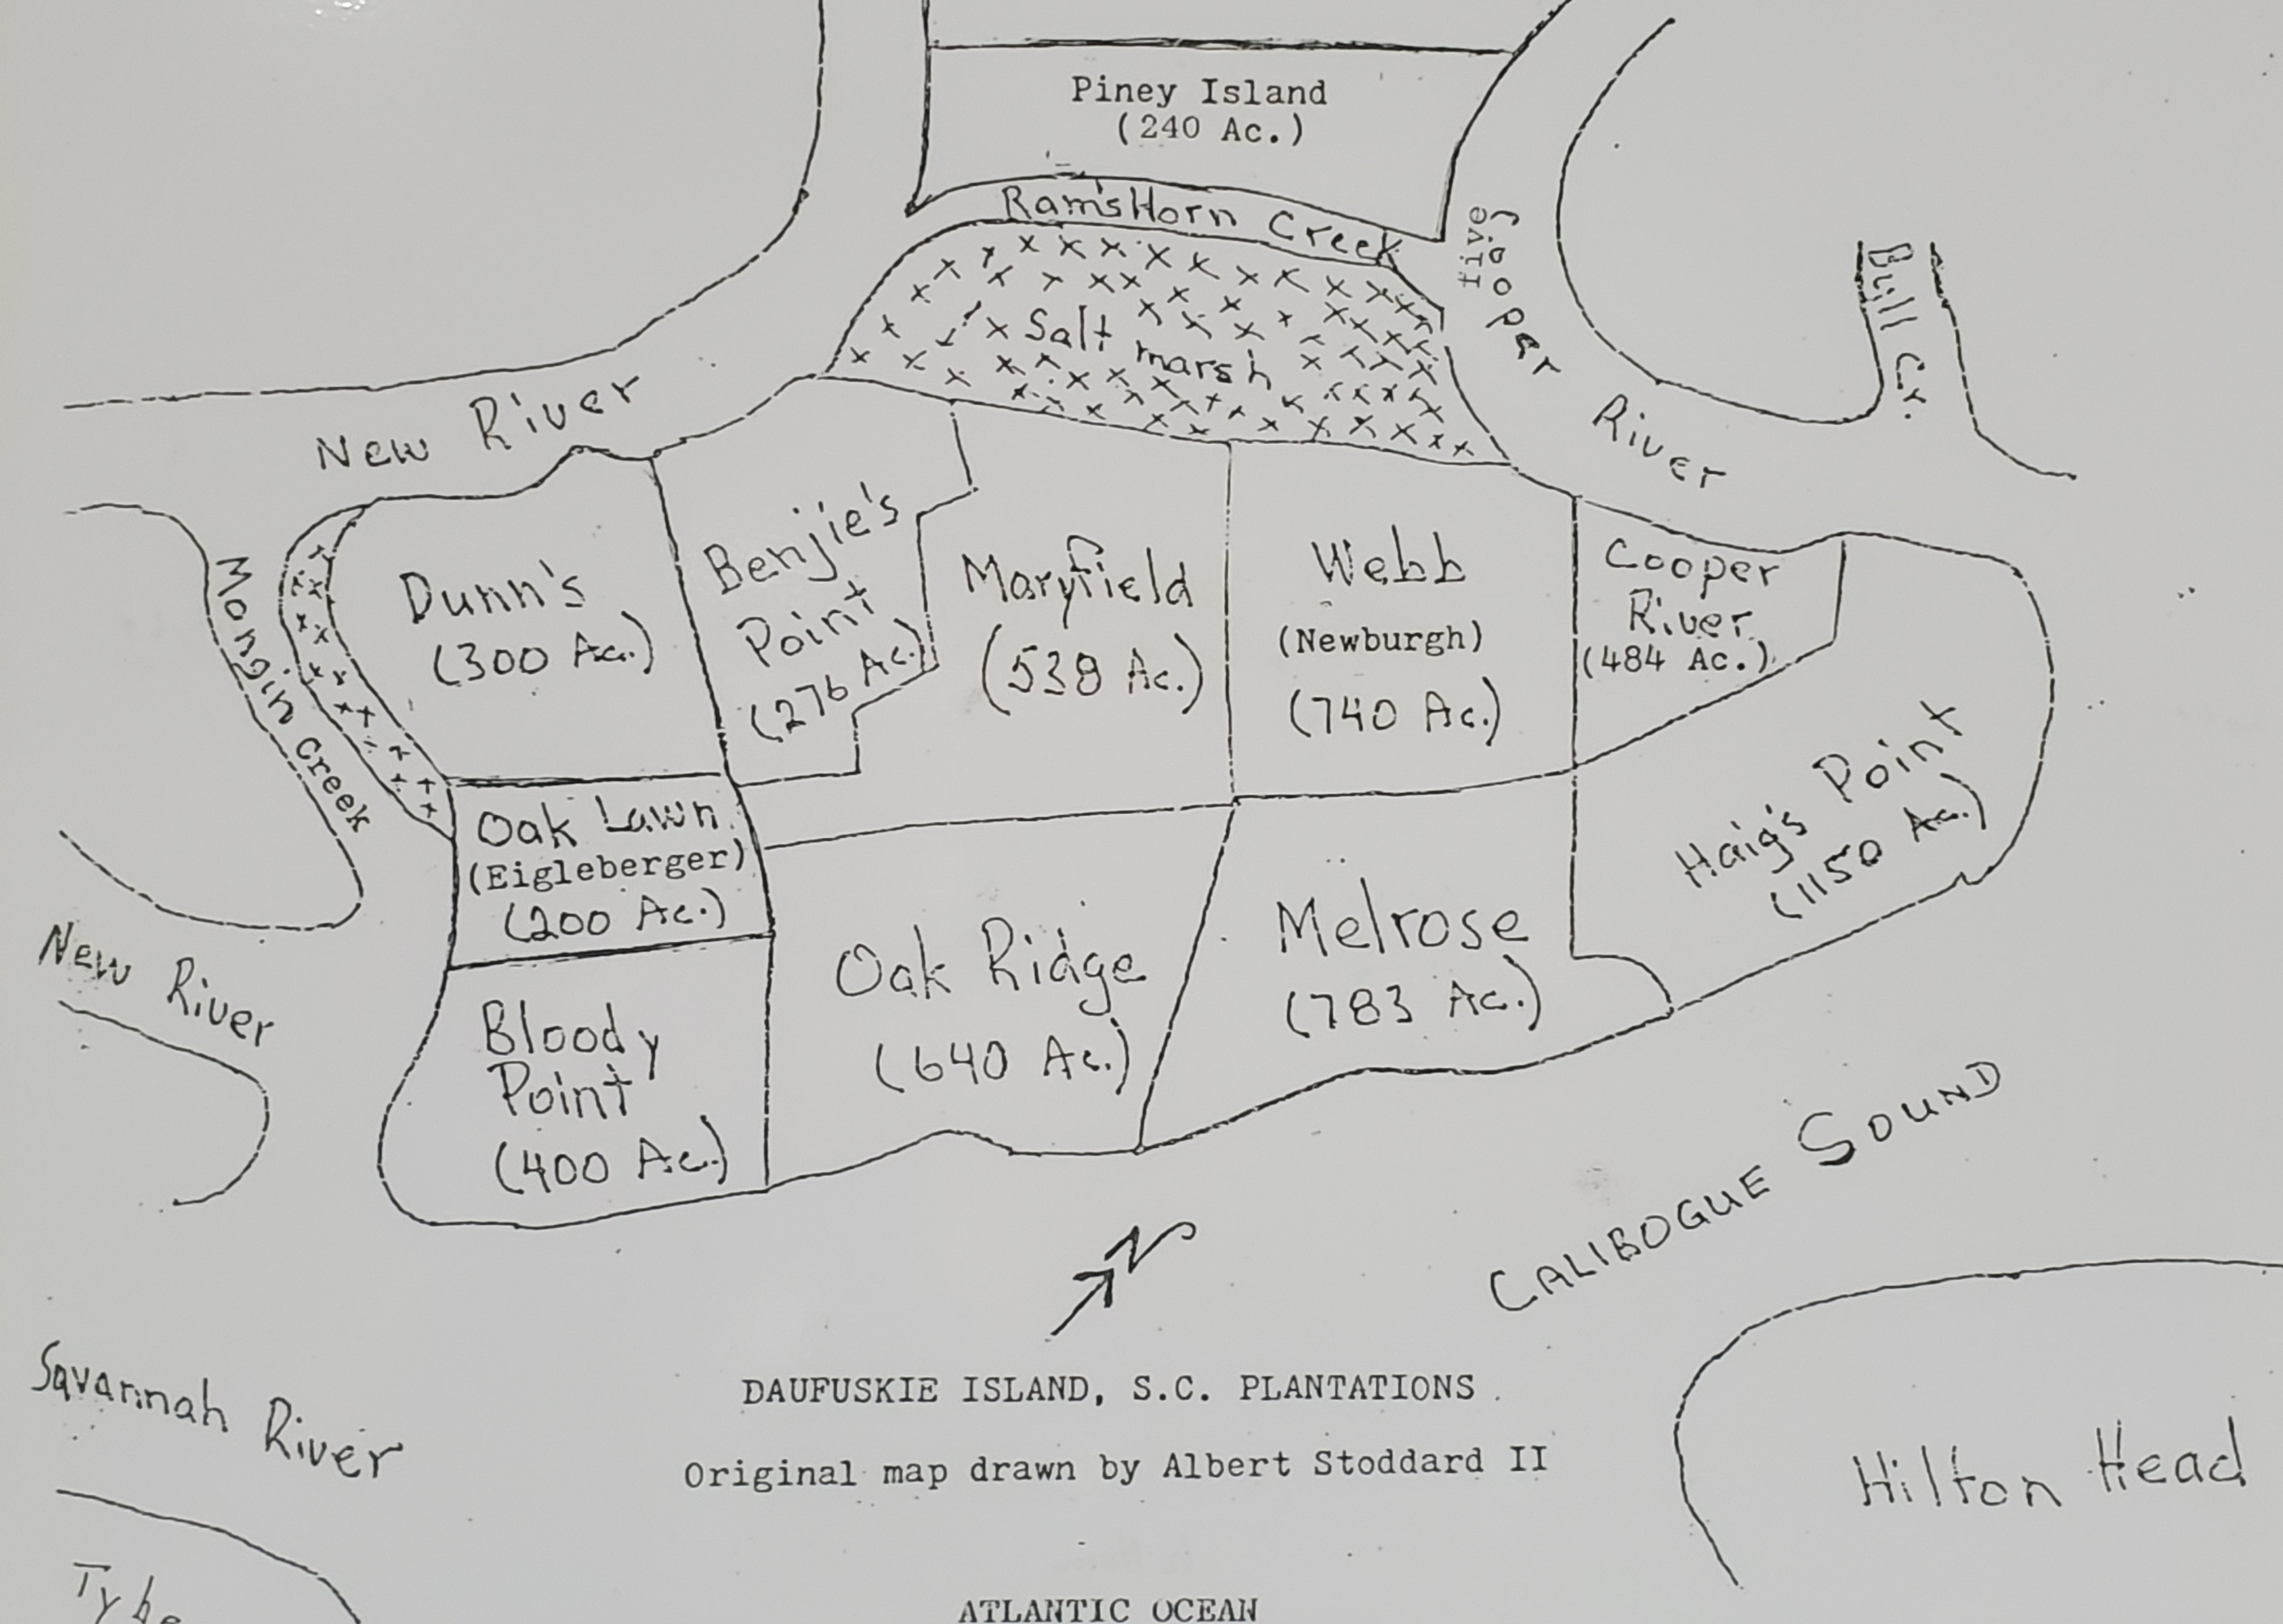 Piney Island
(240 Ac.)
Ram'sHorn Creek
Salt marsh
Cooper River
Bull Cr.
New River
Mongin Creek
Dunn's
(300 Ac.)
Benjie's
Point
(276 Ac.)
Maryfield
(538 Ac.)
Webb
(Newburgh)
(740 Ac.)
Cooper
River
(484 Ac.)
Haig's Point
(1150 Ac.)
Oak Lawn
(Eigleberger)
(200 Ac.)
New River
Bloody
Point
(400 Ac.)
Oak Ridge
(640 Ac.)
Melrose
(783 Ac.)
CALIBOGUE SOUND
N
Savannah River
DAUFUSKIE ISLAND, S.C. PLANTATIONS
Original map drawn by Albert Stoddard II
Hilton Head
Tybe
ATLANTIC OCEAN